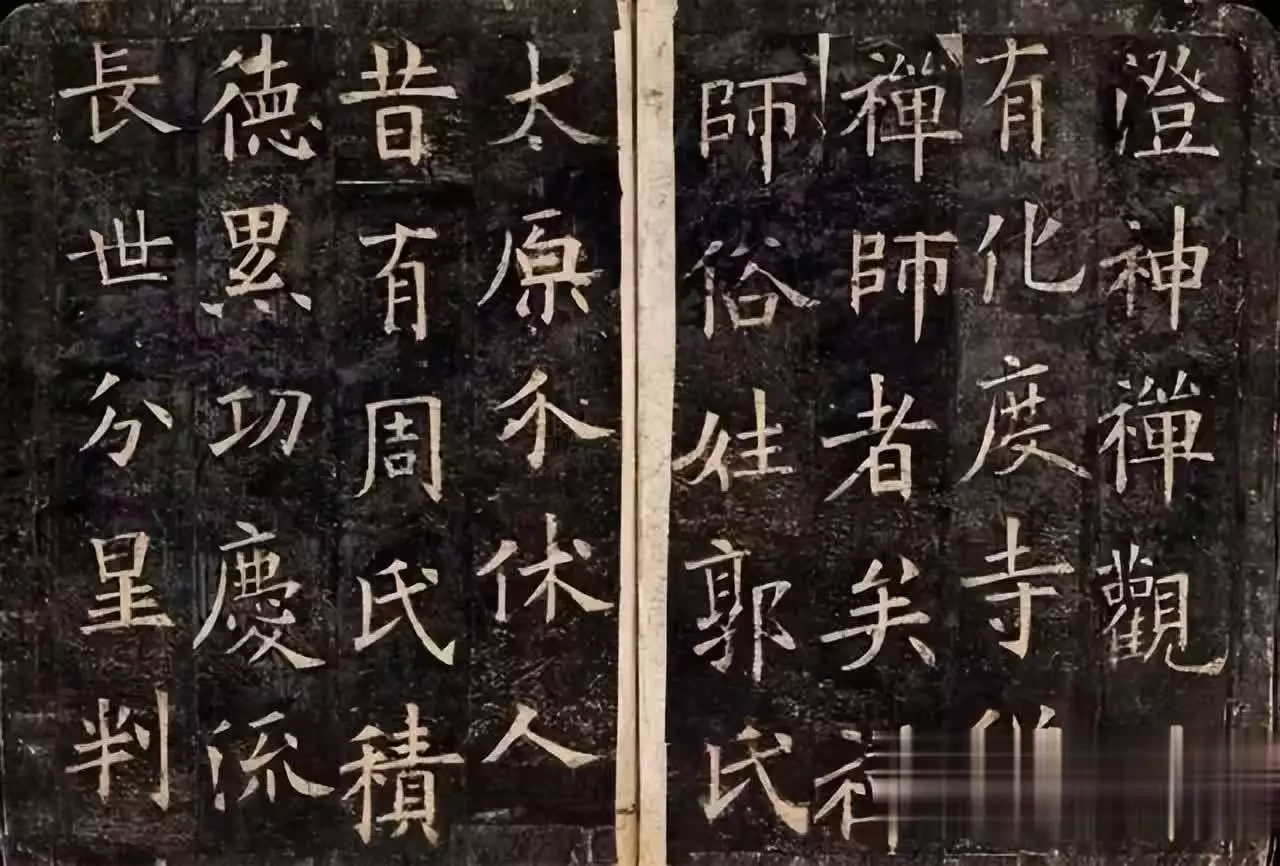 澄神禪觀
有化度寺
禪師者矣
師俗姓郭氏
太原介休人
昔有周氏積
德累功慶流
長世分星判